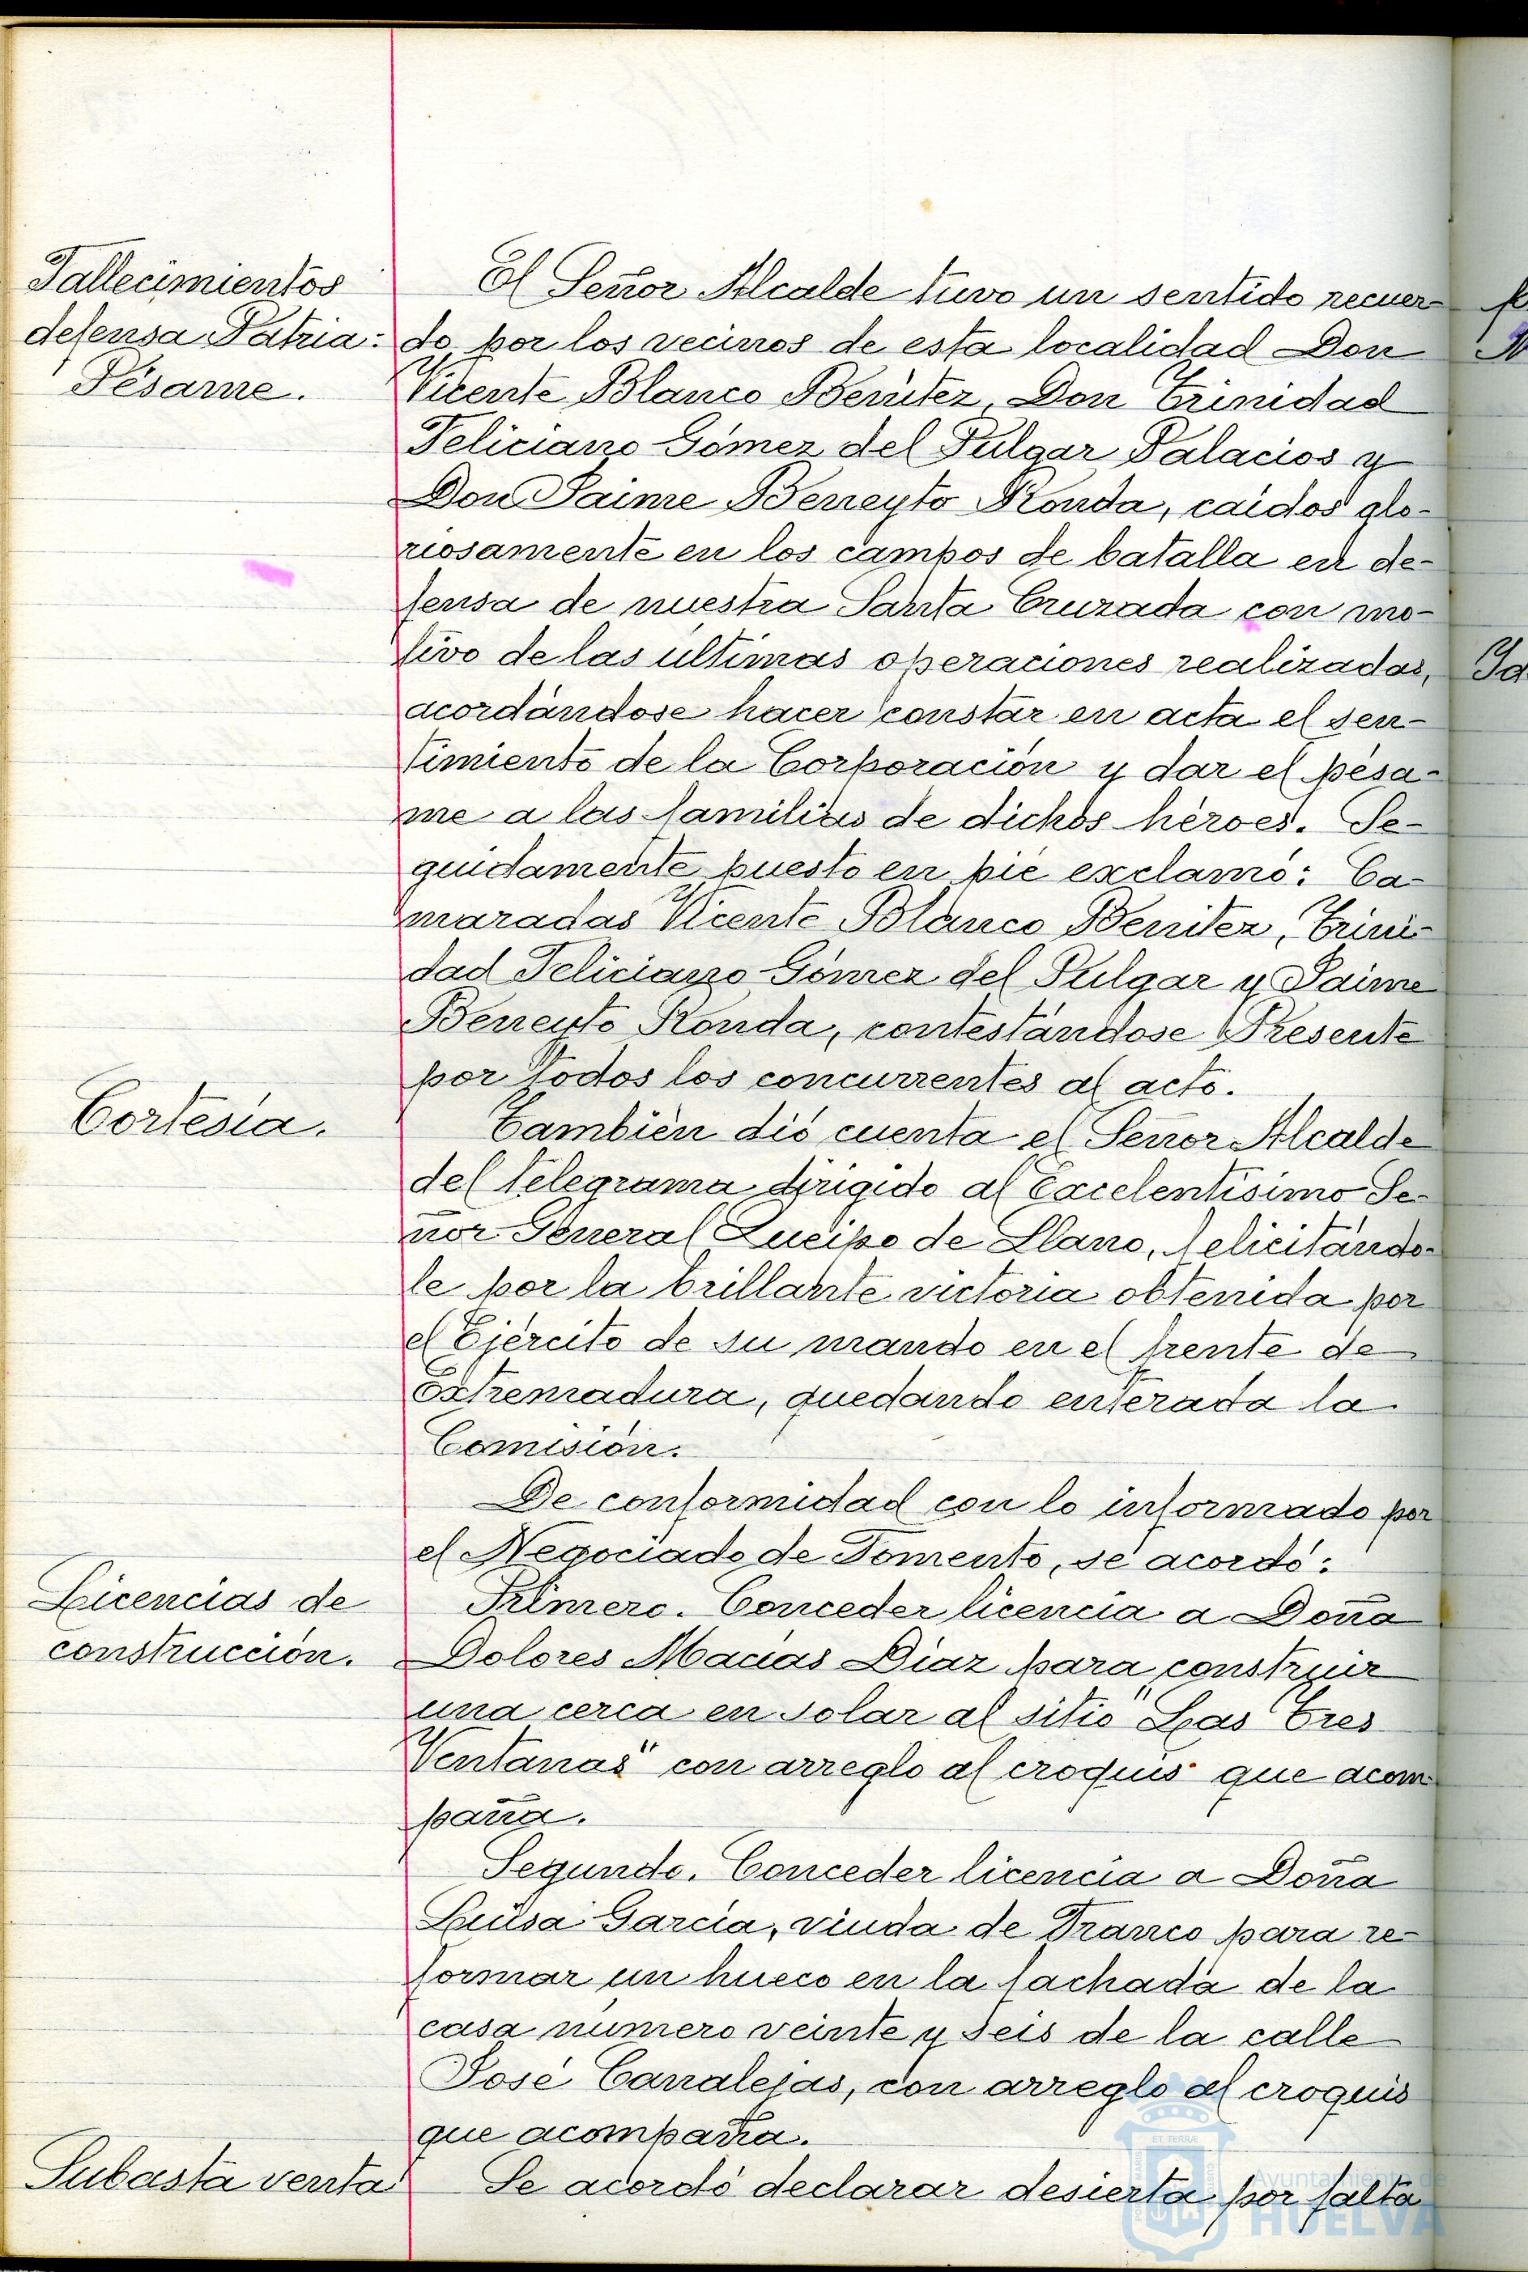 Fallecimientos
defensa Patria:
Pésame.
El Señor Alcalde tuvo un sentido recuer-
do por los vecinos de esta localidad Don
Vicente Blanco Benitez, Don Trinidad
Feliciano Gómez del Pulgar Palacios y
Don Jaime Beneyto Ronda, caidos glo-
riosamente en los campos de batalla en de-
fensa de nuestra Santa Cruzada con mo-
tivo de las ultimas operaciones realizadas,
acordándose hacer constar en acta el sen-
timiento de la Corporación y dar el pésa-
me a las familias de dichos héroes. Se-
guidamente puesto en pié exclamó: Ca-
maradas Vicente Blanco Benitez, Trini-
dad Feliciano Gómez del Pulgar y Jaime
Beneyto Ronda, contestándose Presente
por todos los concurrentes al acto.
Cortesía.
También dió cuenta el Señor Alcalde
del telegrama dirigido al Excelentísimo Se-
ñor General Queipo de Llano, felicitándo-
le por la brillante victoria obtenida por
el Ejército de su mando en el frente de
Extremadura, quedando enterada la
Comisión.
De conformidad con lo informado por
el Negociado de Fomento, se acordó:
Licencias de
construcción.
Primero. Conceder licencia a Doña
Dolores Macías Díaz para construir
una cerca en solar al sitio "Las Tres
Ventanas" con arreglo al croquis que acom
paña.
Segundo. Conceder licencia a Doña
Luisa García, viuda de Franco para re-
formar un hueco en la fachada de la
casa número veinte y seis de la calle
José Canalejas, con arreglo al croquis
que acompaña.
Subasta venta
Se acordó declarar desierta por falta
Ayuntamiento de
HUELVA